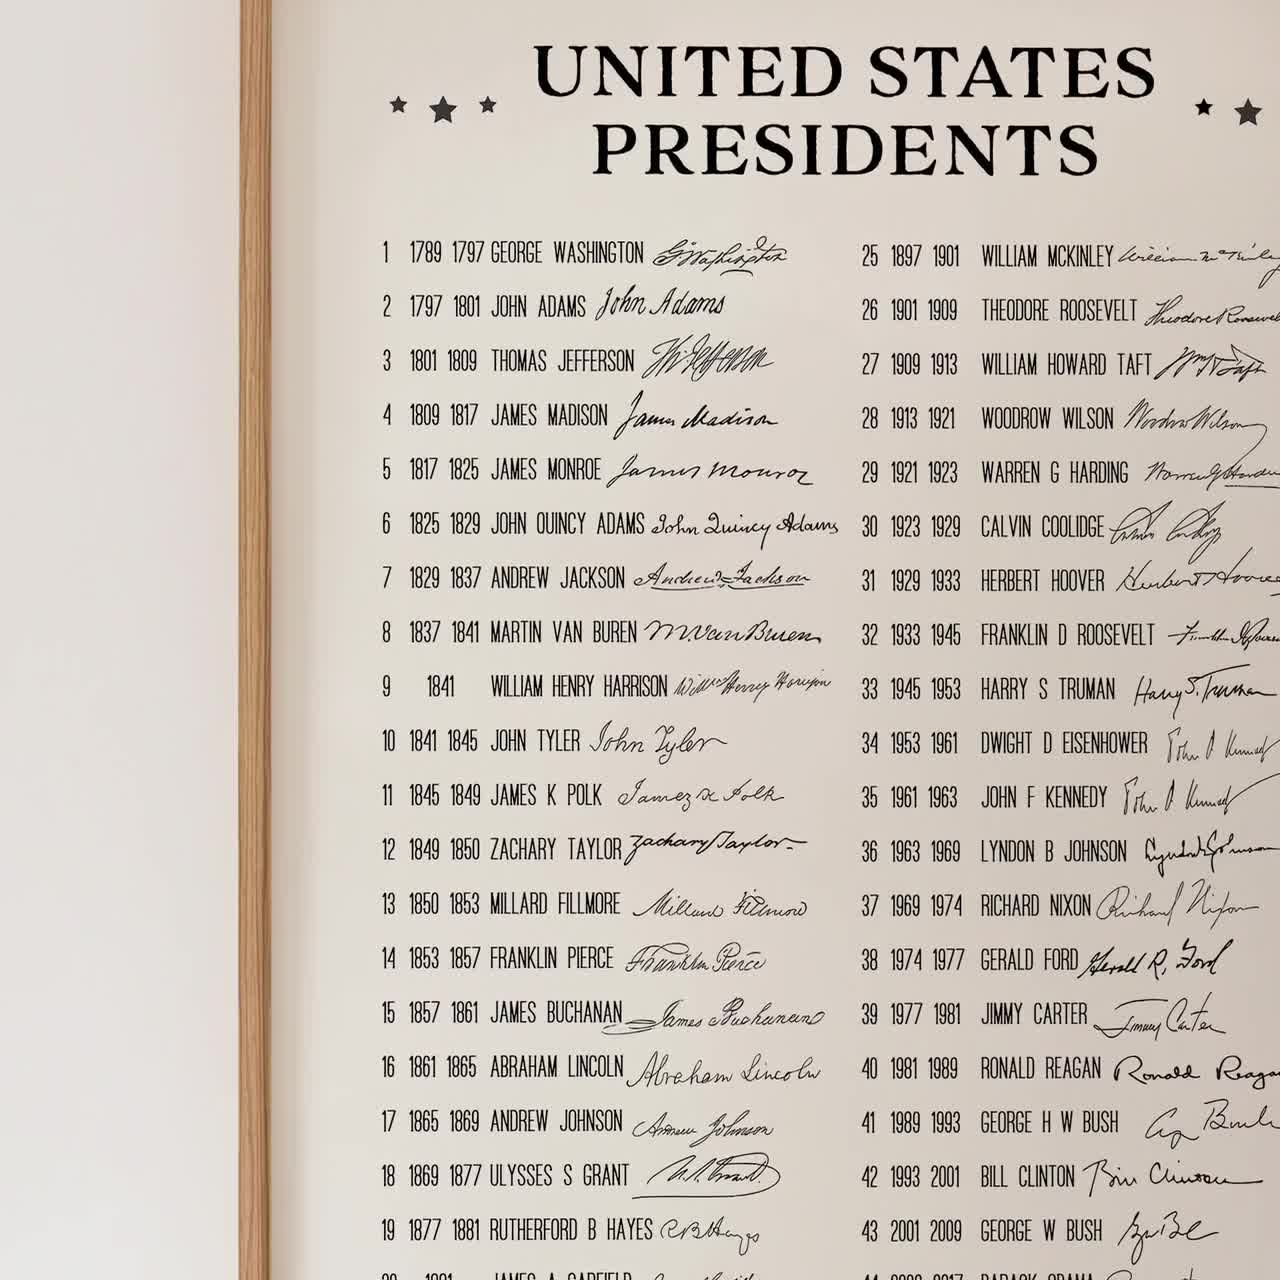 UNITED STATES
PRESIDENTS
1 1789 1797 GEORGE WASHINGTON G Washington
2 1797 1801 JOHN ADAMS John Adams
3 1801 1809 THOMAS JEFFERSON Th. Jefferson
4 1809 1817 JAMES MADISON James Madison
5 1817 1825 JAMES MONROE James Monroe
6 1825 1829 JOHN QUINCY ADAMS John Quincy Adams
7 1829 1837 ANDREW JACKSON Andrew Jackson
8 1837 1841 MARTIN VAN BUREN M. Van Buren
9 1841 WILLIAM HENRY HARRISON
10 1841 1845 JOHN TYLER John Tyler
11 1845 1849 JAMES K POLK James K Polk
12 1849 1850 ZACHARY TAYLOR Zachary Taylor
13 1850 1853 MILLARD FILLMORE Millard Fillmore
14 1853 1857 FRANKLIN PIERCE Franklin Pierce
15 1857 1861 JAMES BUCHANAN James Buchanan
16 1861 1865 ABRAHAM LINCOLN Abraham Lincoln
17 1865 1869 ANDREW JOHNSON Andrew Johnson
18 1869 1877 ULYSSES S GRANT U.S. Grant
19 1877 1881 RUTHERFORD B HAYES R B Hayes
25 1897 1901 WILLIAM MCKINLEY William McKinley
26 1901 1909 THEODORE ROOSEVELT Theodore Roosevelt
27 1909 1913 WILLIAM HOWARD TAFT Wm H Taft
28 1913 1921 WOODROW WILSON Woodrow Wilson
29 1921 1923 WARREN G HARDING Warren G Harding
30 1923 1929 CALVIN COOLIDGE
31 1929 1933 HERBERT HOOVER Herbert Hoover
32 1933 1945 FRANKLIN D ROOSEVELT
33 1945 1953 HARRY S TRUMAN Harry S. Truman
34 1953 1961 DWIGHT D EISENHOWER
35 1961 1963 JOHN F KENNEDY
36 1963 1969 LYNDON B JOHNSON
37 1969 1974 RICHARD NIXON Richard Nixon
38 1974 1977 GERALD FORD Gerald R. Ford
39 1977 1981 JIMMY CARTER Jimmy Carter
40 1981 1989 RONALD REAGAN Ronald Reagan
41 1989 1993 GEORGE H W BUSH
42 1993 2001 BILL CLINTON Bill Clinton
43 2001 2009 GEORGE W BUSH